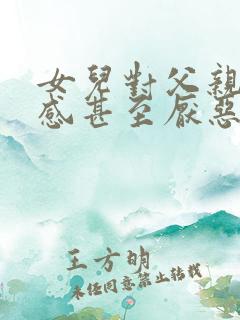 女兒對父親
感甚至厭惡
王方明
未經同意禁止轉載